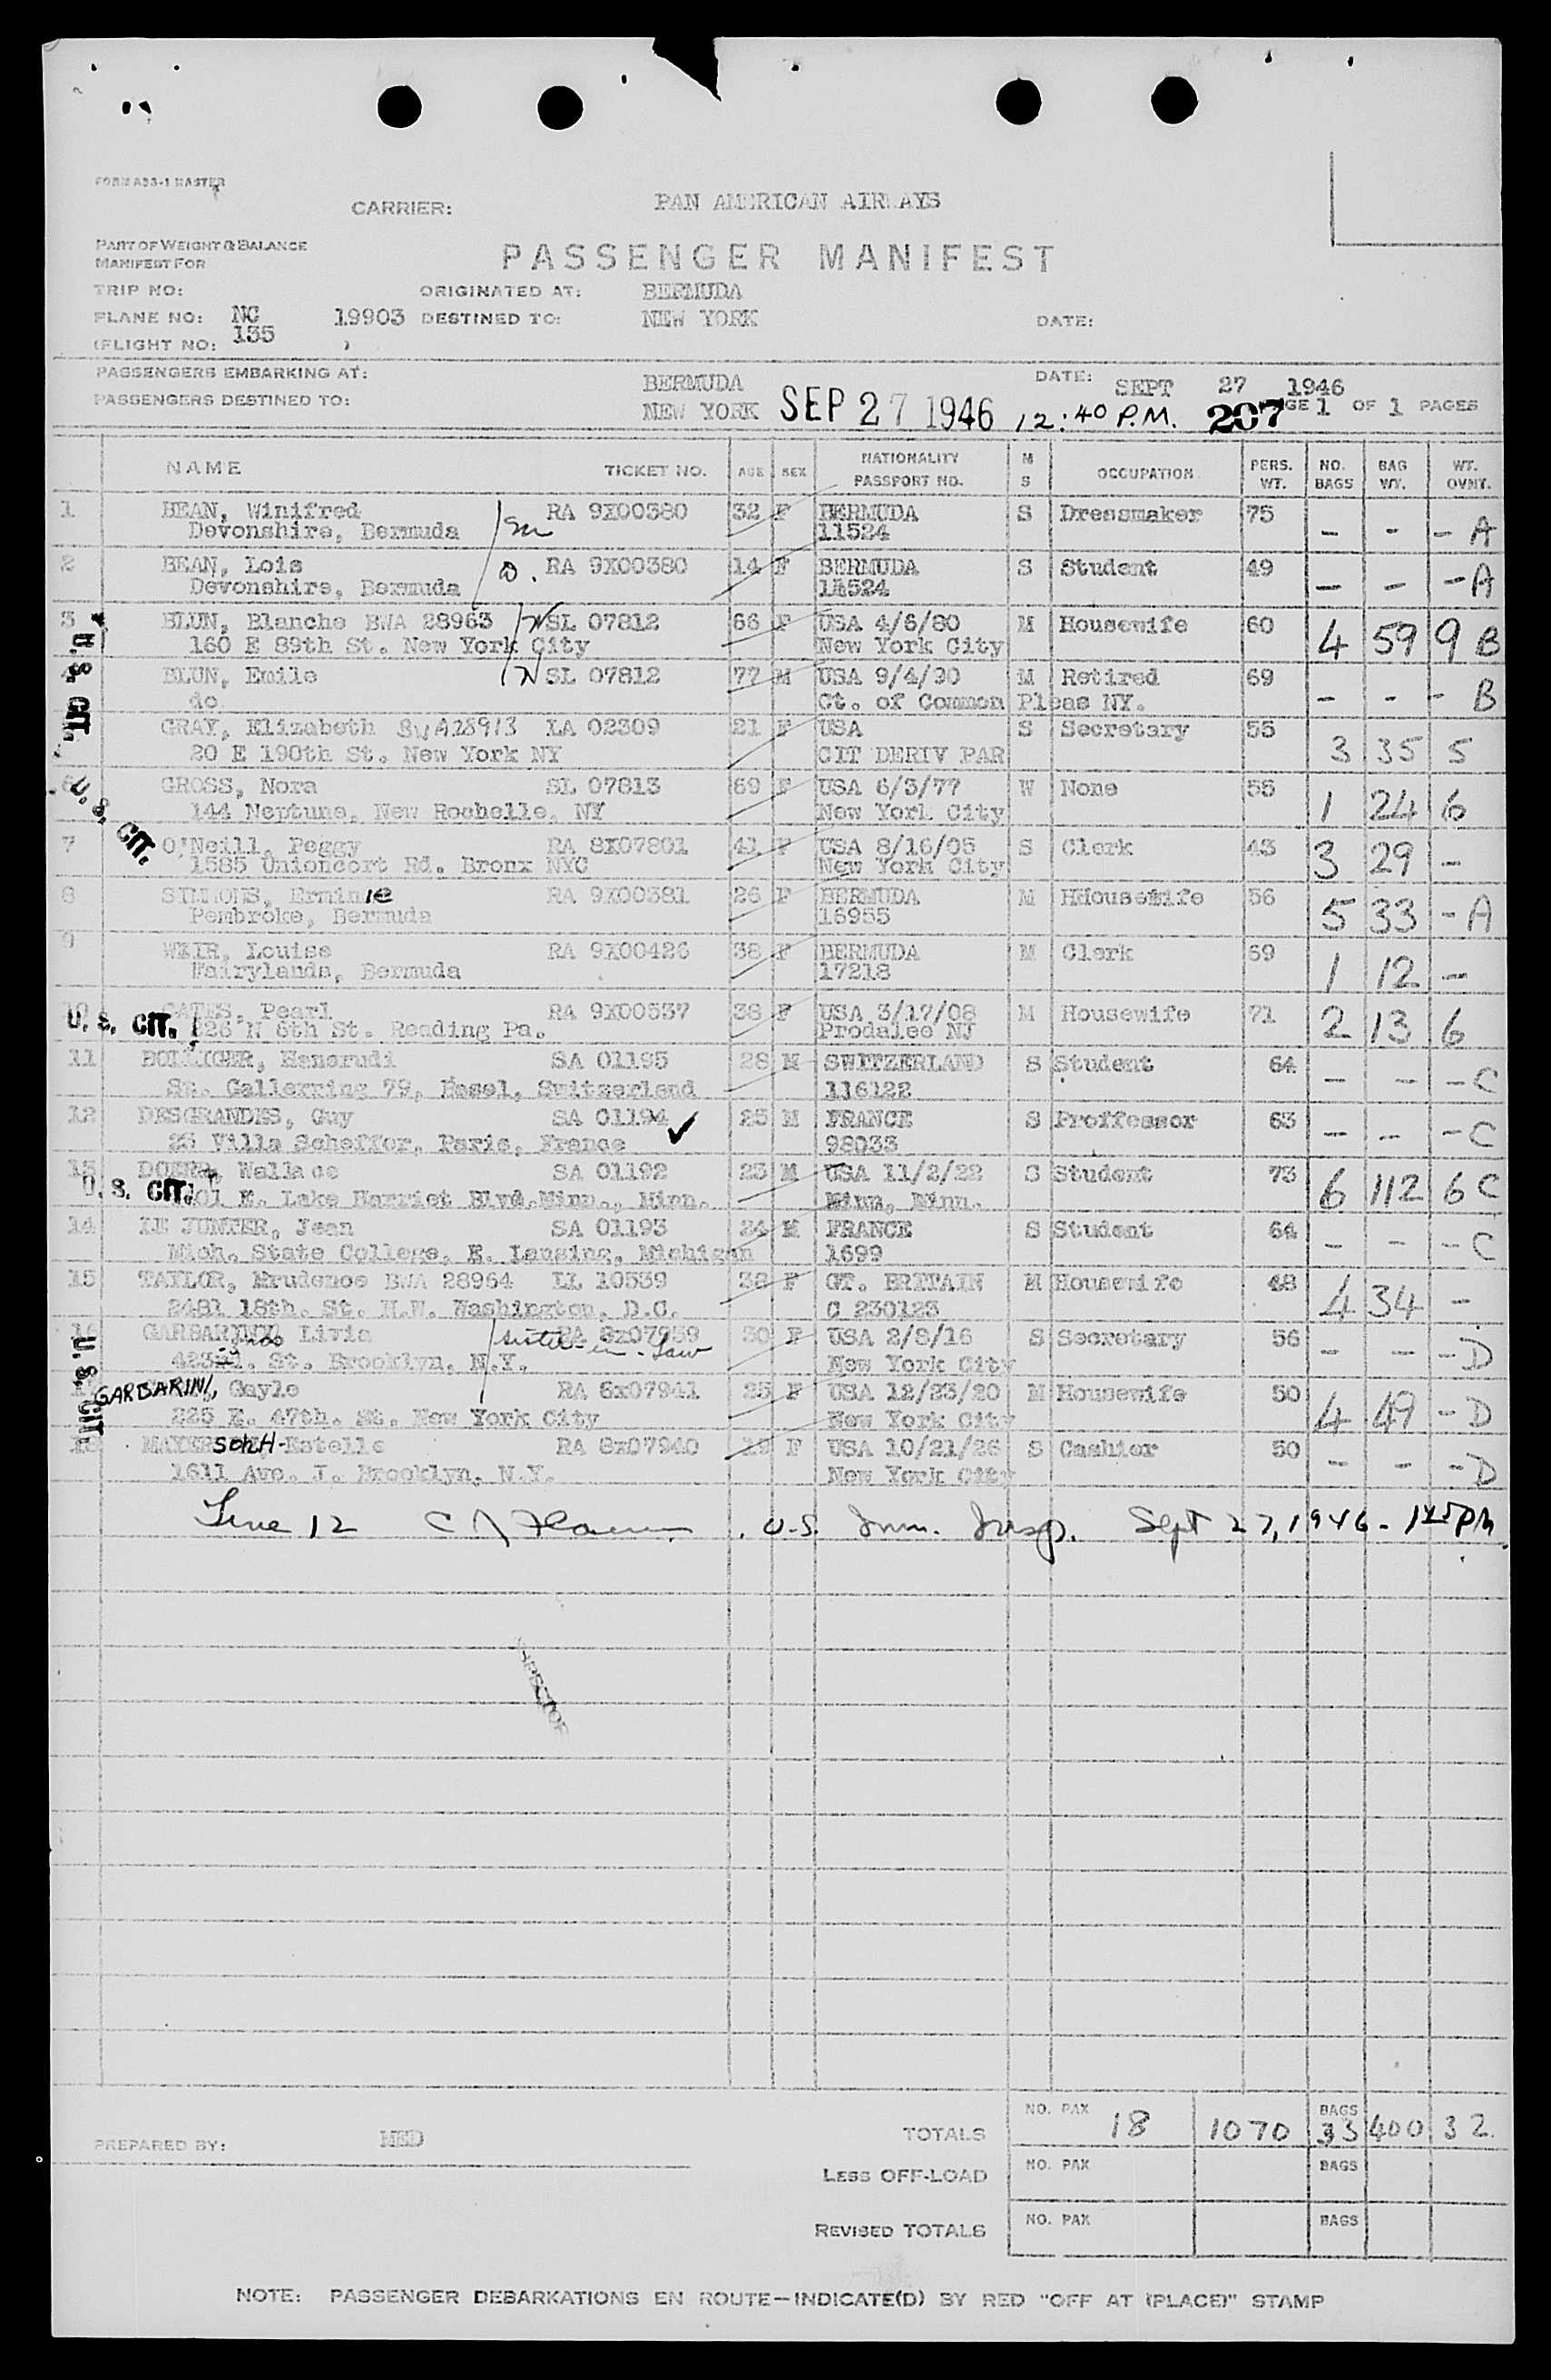 FORM A33-1 MASTER
CARRIER: PAN AMERICAN AIRWAYS
PART OF WEIGHT & BALANCE
MANIFEST FOR
PASSENGER MANIFEST
TRIP NO: ORIGINATED AT: BERMUDA
PLANE NO: NC 19903 DESTINED TO: NEW YORK DATE:
(FLIGHT NO: 135 )
PASSENGERS EMBARKING AT: BERMUDA DATE: SEPT 27 1946
PASSENGERS DESTINED TO: NEW YORK SEP 27 1946 12:40 P.M. 207 PAGE 1 OF 1 PAGES
NAME TICKET NO. AGE SEX NATIONALITY PASSPORT NO. M S OCCUPATION PERS. WT. NO. BAGS BAG WT. WT. OVWT.
1 BEAN, Winifred RA 9X00380 32 F BERMUDA S Dressmaker 75 - - - A
Devonshire, Bermuda 11524
2 BEAN, Lois D. RA 9X00380 14 F BERMUDA S Student 49 - - - A
Devonshire, Bermuda 11524
3 BLUN, Blanche BWA 28963 N SL 07812 66 F USA 4/6/80 M Housewife 60 4 59 9 B
160 E 89th St. New York City New York City
U. S. CIT.
BLUN, Emile N SL 07812 77 M USA 9/4/90 M Retired 69 - - - B
do Ct. of Common Pleas NY.
GRAY, Elizabeth BWA28913 LA 02309 21 F USA S Secretary 55 3 35 5
20 E 190th St. New York NY CIT DERIV PAR
6 GROSS, Nora SL 07813 69 F USA 6/3/77 W None 55 1 24 6
144 Neptune, New Rochelle, NY New York City
U. S. CIT.
7 O'Neill, Peggy RA 8X07801 41 F USA 8/16/05 S Clerk 43 3 29 -
1585 Unioncort Rd. Bronx NYC New York City
8 SIMMONS, Erminie RA 9X00381 26 F BERMUDA M HHousewife 56 5 33 - A
Pembroke, Bermuda 16955
9 WEIR, Louise RA 9X00426 38 F BERMUDA M Clerk 59 1 12 -
Fairylands, Bermuda 17218
10 OATES, Pearl RA 9X00537 38 F USA 3/17/08 M Housewife 71 2 13 6
U. S. CIT. 226 N 6th St. Reading Pa. Prodalee NJ
11 BOLLIGER, Hansrudi SA 01195 28 M SWITZERLAND S Student 64 - - - C
St. Gallerring 79, Basel, Switzerland 116122
12 DESGRANDES, Guy SA 01194 25 M FRANCE S Proffessor 63 - - - C
23 Villa Scheffer, Paris, France 98033
13 Wallace SA 01192 23 M USA 11/2/22 S Student 73 6 112 6 C
U. S. CIT. 01 E. Lake Harriet Blvd.Minn., Minn. Minn, Minn.
14 LE JUNTER, Jean SA 01193 24 M FRANCE S Student 64 - - - C
Mich. State College, E. Lansing, Michigan 1699
15 TAYLOR, Prudence BWA 28964 LL 10539 38 F GT. BRITAIN M Housewife 48 4 34 -
2481 18th. St. N.W. Washington, D.C. C 230123
16 Livia sister-in-law RA 8x07959 30 F USA 2/8/16 S Secretary 56 - - - D
423rd. St. Brooklyn, N.Y. New York City
U. S. CIT.
17 GARBARINI, Gayle RA 8x07941 25 F USA 12/23/20 M Housewife 50 4 49 - D
225 E. 47th. St. New York City New York City
18 MAYERSOHN-Estelle RA 8x07940 19 F USA 10/21/26 S Cashier 50 - - - D
1611 Ave. J. Brooklyn, N.Y. New York City
Line 12 U.S. Imm. Insp. Sept 27, 1946 - 1 45 PM
TOTALS NO. PAX 18 1070 BAGS 33 400 32
PREPARED BY: MED
LESS OFF-LOAD NO. PAX BAGS
REVISED TOTALS NO. PAX BAGS
NOTE: PASSENGER DEBARKATIONS EN ROUTE—INDICATE(D) BY RED "OFF AT (PLACE)" STAMP